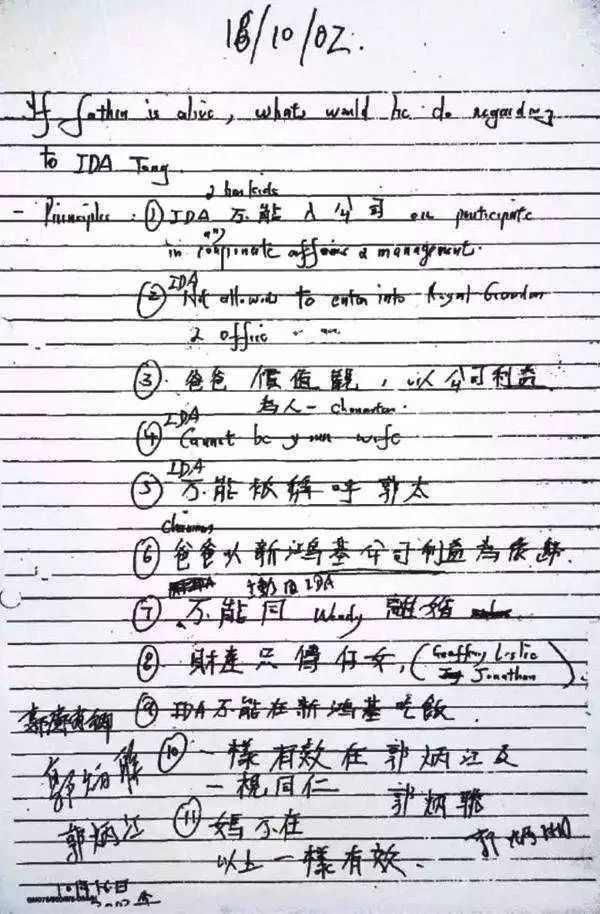 18/10/02.
If father is alive, what would he do regarding
to IDA Tang.
2 her kids
- Principles : ① IDA 不能入公司 or participate
any
in corporate affairs & management.
IDA
② Not allowed to enter into Royal Garden
& office
③ 爸爸價值觀，以公司利益
為人 - character.
IDA
④ Cannot be your wife
IDA
⑤ 不能被稱呼郭太
⑥ 爸爸以新鴻基公司利益為依歸.
IDA
⑦ 不能同 Wendy 離婚
⑧ 財產只傳仔女, (Geoffrey Leslie
Jonathan).
⑨ IDA不能在新鴻基吃飯.
⑩ 一樣有效在郭炳江及
一視同仁 郭炳聯
郭炳江 ⑪ 媽不在
以上一樣有效.
10月16日
2002年